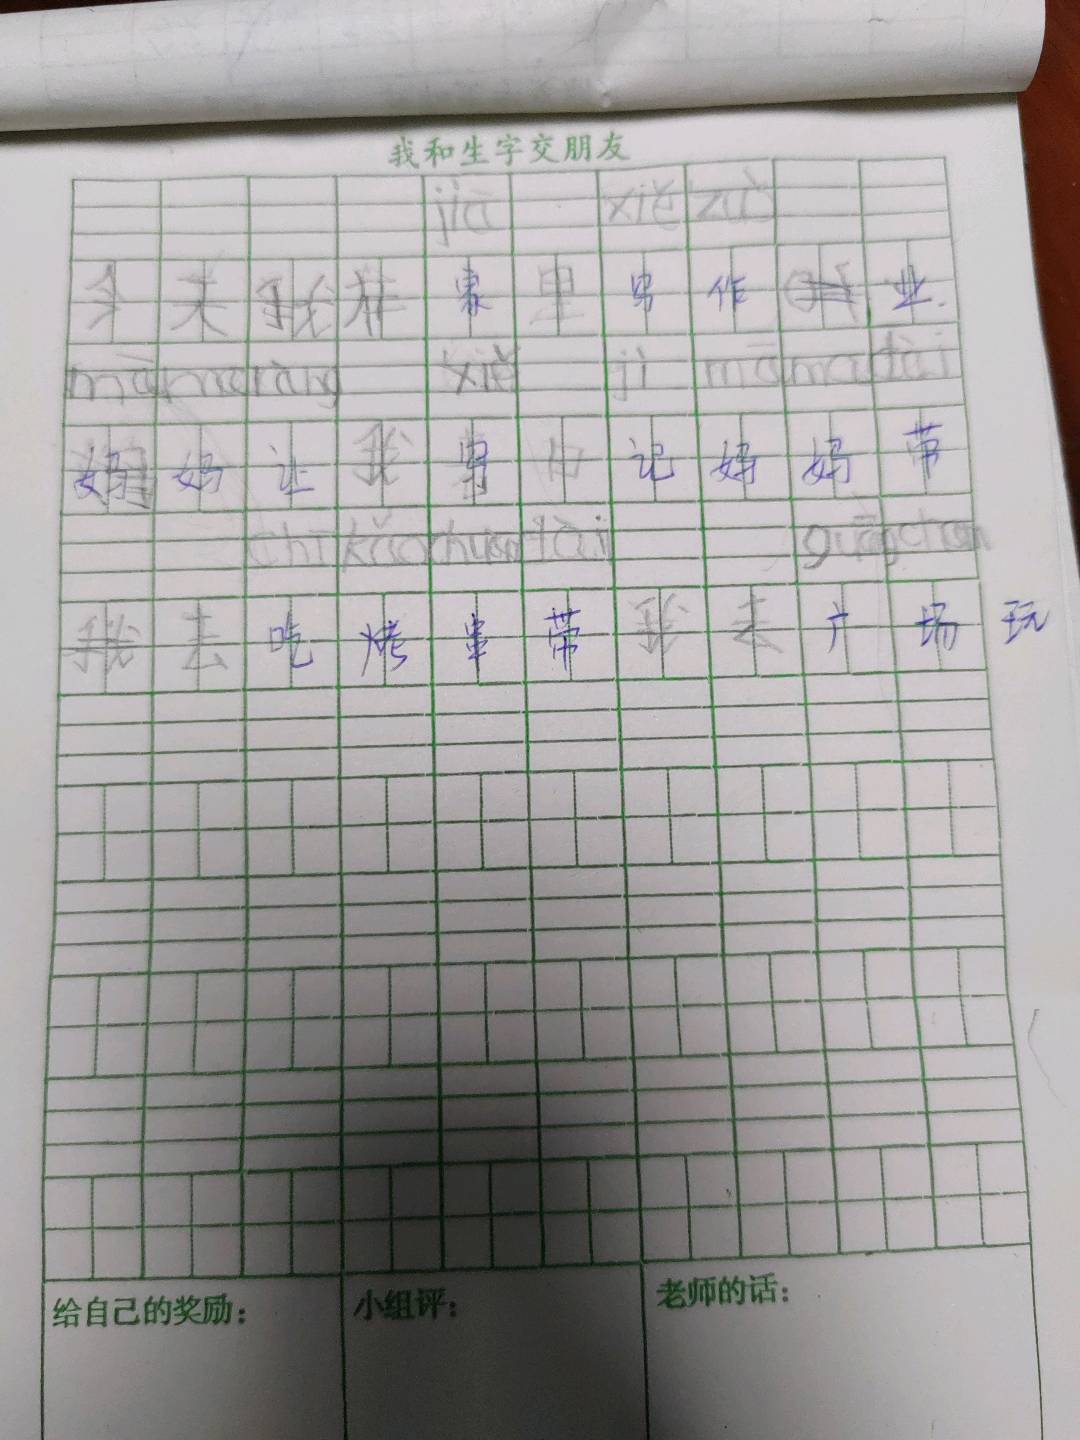 我和生字交朋友
jiā xiě zuò
今天我在家里写作业.
mā ma ràng xiě jì mā ma dài
妈妈让我写日记妈妈带
chī kǎo chuan dài guǎng chǎng
我去吃烤串带我去广场玩
给自己的奖励: 小组评: 老师的话: